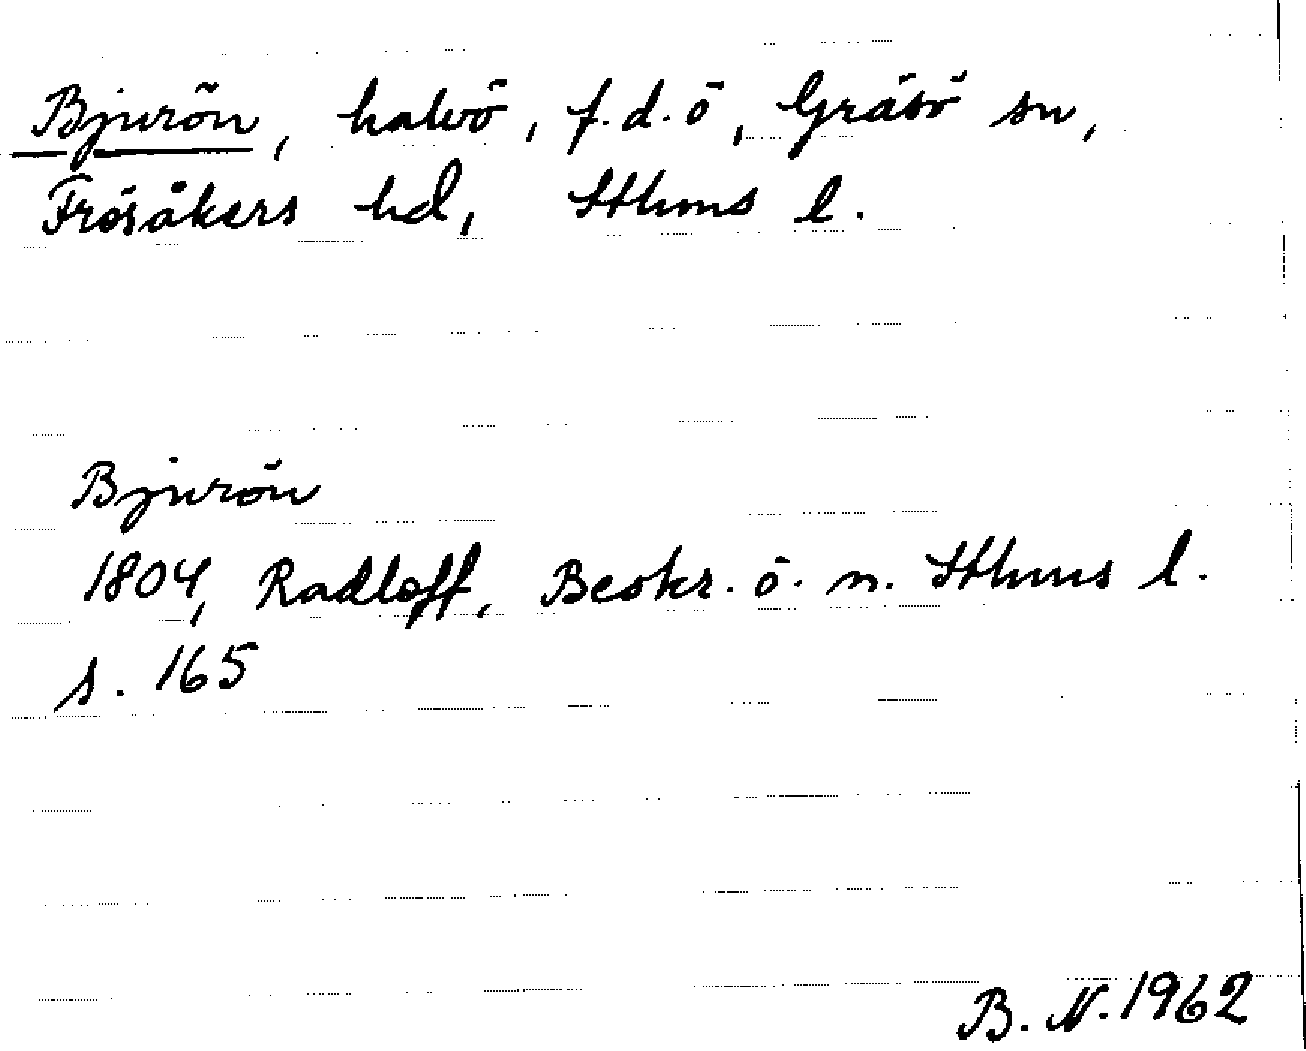 Bjurön, halvö, f.d. ö, Gräsö sn,
Frösåkers hd, Sthms l.
Bjurön
1804, Radloff, Beskr. ö. n. Sthms l.
s. 165
B. N. 1962